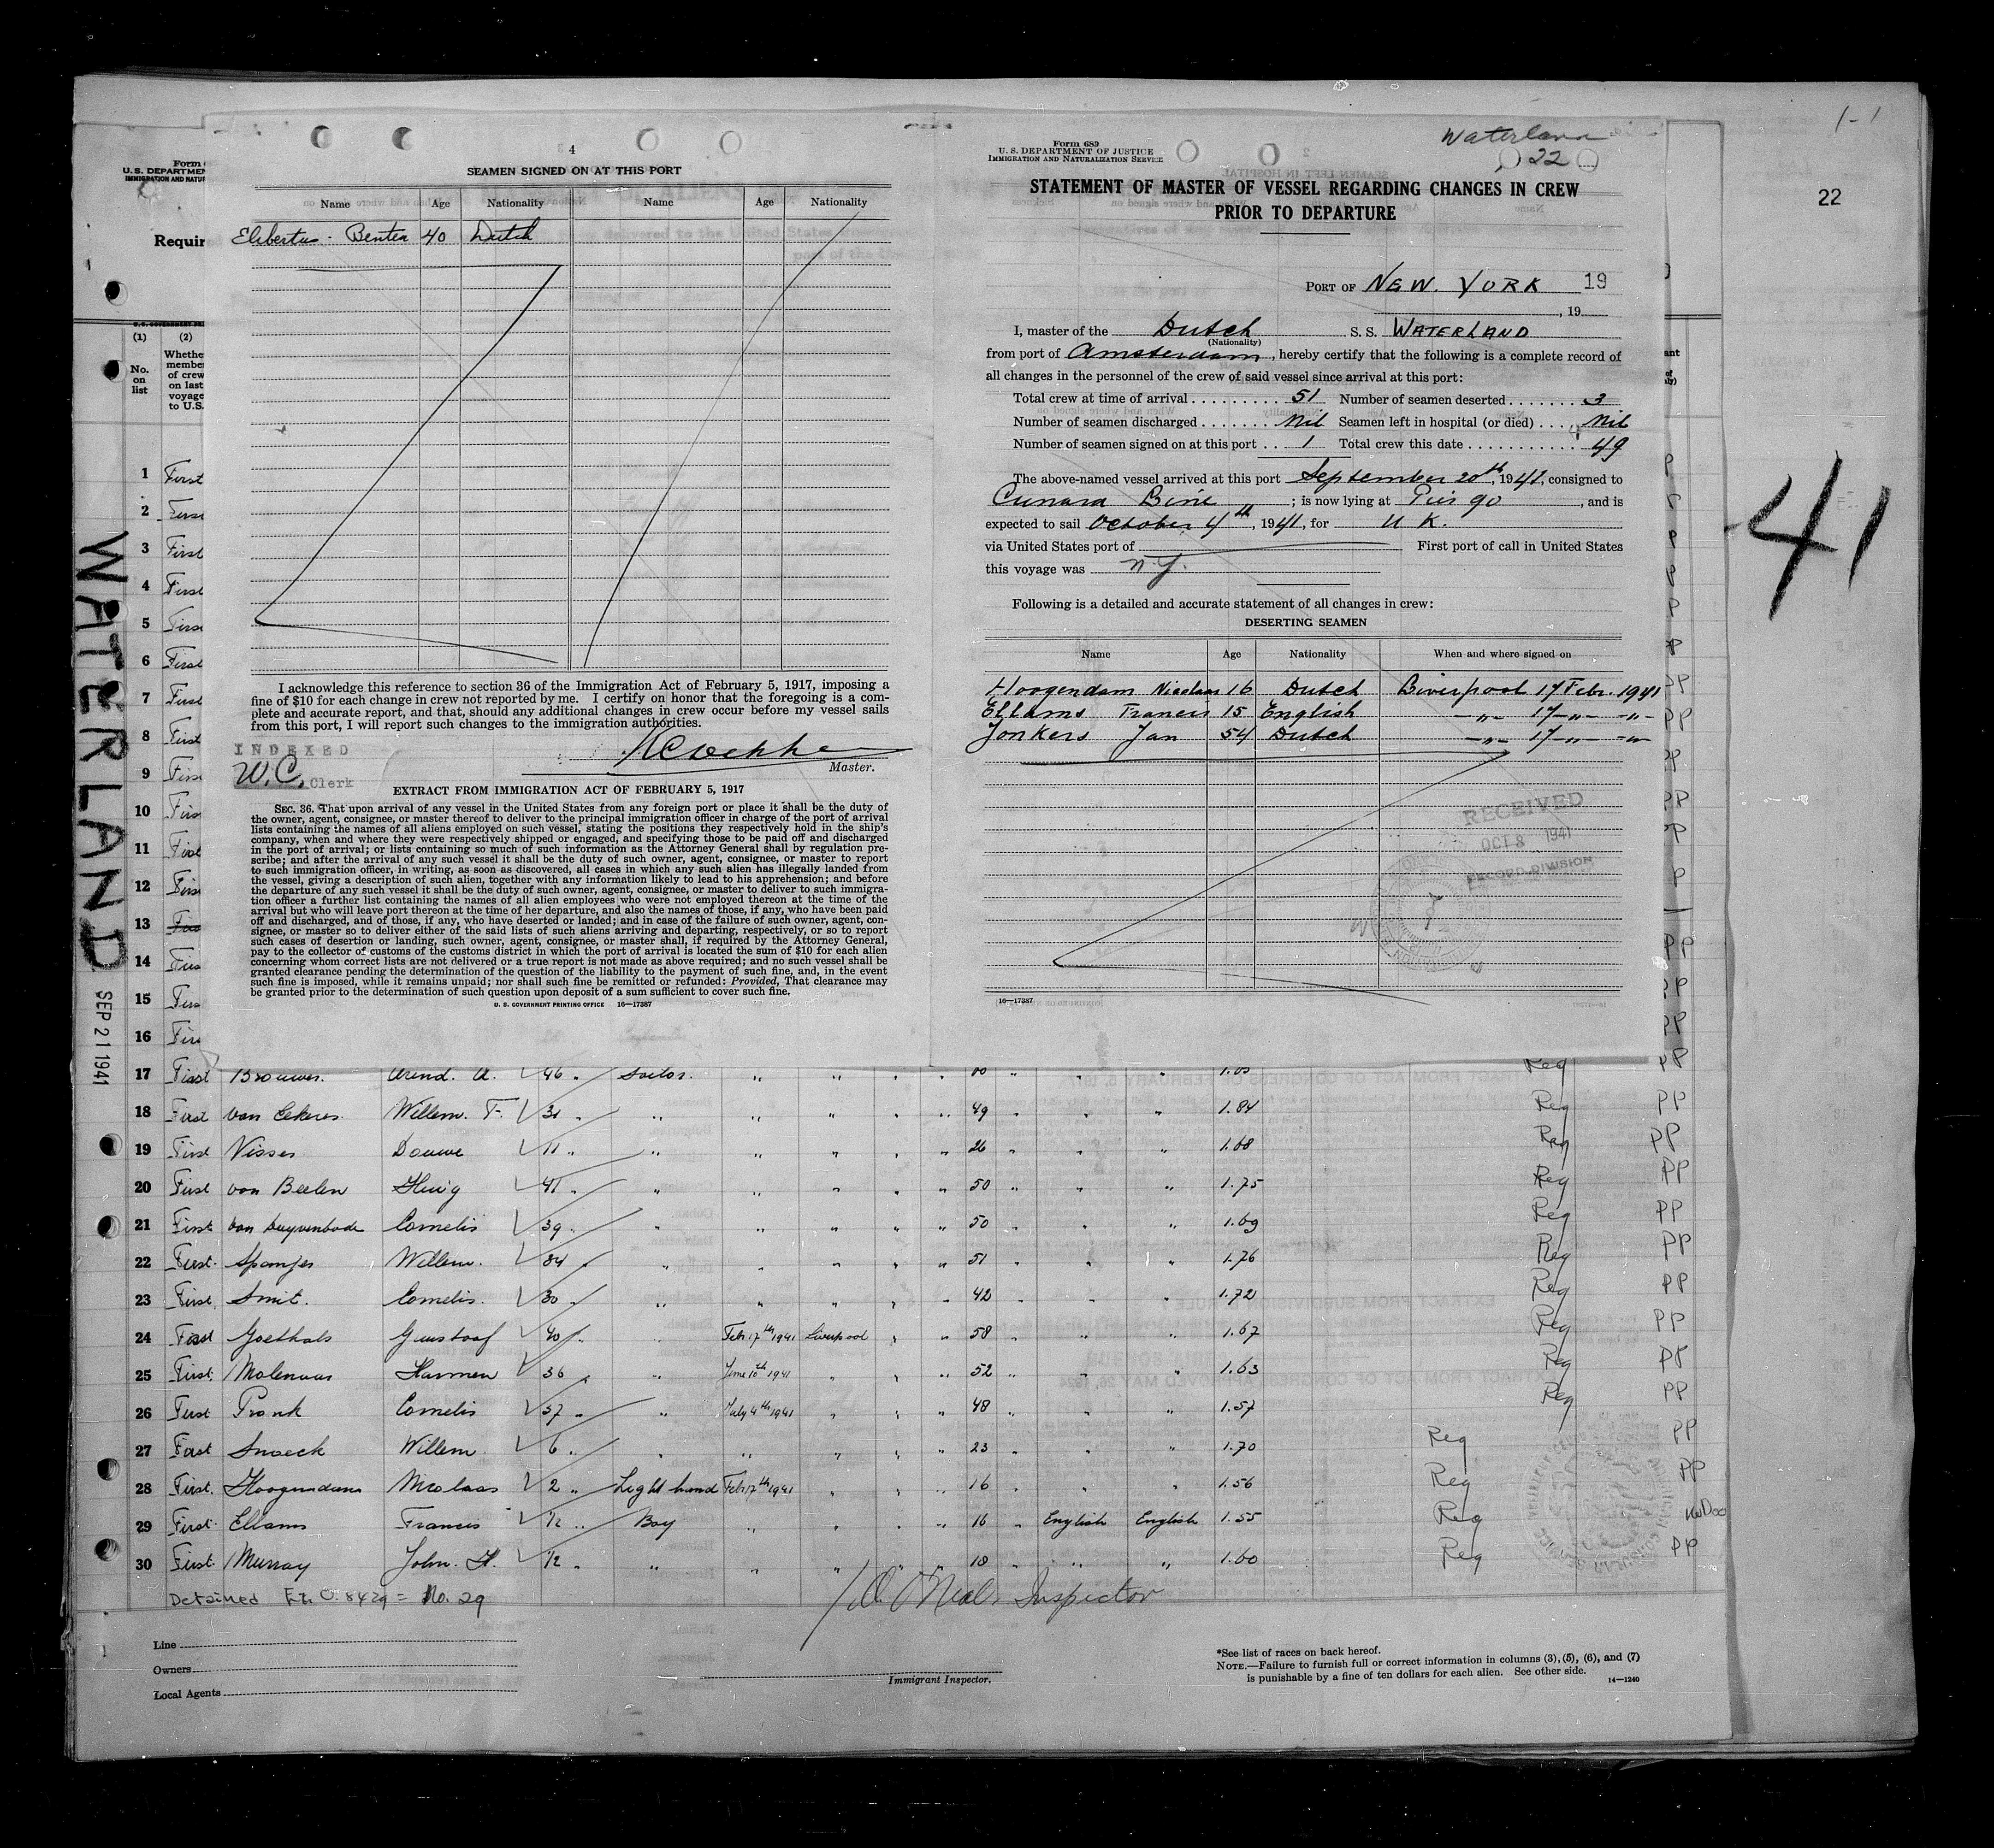 1-1
22
41
WATERLAND
SEP 21 1941
4
SEAMEN SIGNED ON AT THIS PORT
Name Age Nationality Name Age Nationality
Elibertus Benten 40 Dutch
I acknowledge this reference to section 36 of the Immigration Act of February 5, 1917, imposing a
fine of $10 for each change in crew not reported by me. I certify on honor that the foregoing is a com-
plete and accurate report, and that, should any additional changes in crew occur before my vessel sails
from this port, I will report such changes to the immigration authorities.
INDEXED
W.C. Clerk
Master.
EXTRACT FROM IMMIGRATION ACT OF FEBRUARY 5, 1917
SEC. 36. That upon arrival of any vessel in the United States from any foreign port or place it shall be the duty of
the owner, agent, consignee, or master thereof to deliver to the principal immigration officer in charge of the port of arrival
lists containing the names of all aliens employed on such vessel, stating the positions they respectively hold in the ship's
company, when and where they were respectively shipped or engaged, and specifying those to be paid off and discharged
in the port of arrival; or lists containing so much of such information as the Attorney General shall by regulation pre-
scribe; and after the arrival of any such vessel it shall be the duty of such owner, agent, consignee, or master to report
to such immigration officer, in writing, as soon as discovered, all cases in which any such alien has illegally landed from
the vessel, giving a description of such alien, together with any information likely to lead to his apprehension; and before
the departure of any such vessel it shall be the duty of such owner, agent, consignee, or master to deliver to such immigra-
tion officer a further list containing the names of all alien employees who were not employed thereon at the time of the
arrival but who will leave port thereon at the time of her departure, and also the names of those, if any, who have been paid
off and discharged, and of those, if any, who have deserted or landed; and in case of the failure of such owner, agent, con-
signee, or master so to deliver either of the said lists of such aliens arriving and departing, respectively, or so to report
such cases of desertion or landing, such owner, agent, consignee, or master shall, if required by the Attorney General,
pay to the collector of customs of the customs district in which the port of arrival is located the sum of $10 for each alien
concerning whom correct lists are not delivered or a true report is not made as above required; and no such vessel shall be
granted clearance pending the determination of the question of the liability to the payment of such fine, and, in the event
such fine is imposed, while it remains unpaid; nor shall such fine be remitted or refunded: Provided, That clearance may
be granted prior to the determination of such question upon deposit of a sum sufficient to cover such fine.
U. S. GOVERNMENT PRINTING OFFICE 16—17387
Waterland
22
Form 689
U. S. DEPARTMENT OF JUSTICE
IMMIGRATION AND NATURALIZATION SERVICE
STATEMENT OF MASTER OF VESSEL REGARDING CHANGES IN CREW
PRIOR TO DEPARTURE
PORT OF NEW. YORK 19
, 19
I, master of the Dutch S. S. WATERLAND
(Nationality)
from port of Amsterdam, hereby certify that the following is a complete record of
all changes in the personnel of the crew of said vessel since arrival at this port:
Total crew at time of arrival 51 Number of seamen deserted 3
Number of seamen discharged Nil Seamen left in hospital (or died) Nil
Number of seamen signed on at this port 1 Total crew this date 49
The above-named vessel arrived at this port September 20th, 1941, consigned to
Cunard Line; is now lying at Pier 90, and is
expected to sail October 4th, 1941, for U K.
via United States port of First port of call in United States
this voyage was n.y.
Following is a detailed and accurate statement of all changes in crew:
DESERTING SEAMEN
Name Age Nationality When and where signed on
Hoogendam Nicolaas 16 Dutch Liverpool 17 Febr. 1941
Ellams Francis 15 English —„— 17 —„— —„—
Jonkers Jan 54 Dutch —„— 17 —„— —„—
RECEIVED
OCT 8 1941
RECORD DIVISION
16—17387
Form
U. S. DEPARTMEN
IMMIGRATION AND NATUR
Requir
(1) (2)
No. on list
Whethe
membe
of crew
on last
voyage
to U.S.
1 First
2 First
3 First
4 First
5 First
6 First
7 First
8 First
9 First
10 First
11 First
12 First
13
14 First
15 First
16 First
17 First Brouwer. Arend. A. 46 „ Sailor. „ „ „ „
18 First van Ekeren Willem. F. 31 „ „ „ „ „ „ 49 „ „ „ 1.84 Reg PP
19 First Visser Douwe 11 „ „ „ „ „ „ 26 „ „ „ 1.68 Reg PP
20 First van Beelen Huig 41 „ „ „ „ „ „ 50 „ „ „ 1.75 Reg PP
21 First van Duyvenbode Cornelis 39 „ „ „ „ „ „ 50 „ „ „ 1.69 Reg PP
22 First Spanjer Willem. 34 „ „ „ „ „ „ 51 „ „ „ 1.76 Reg PP
23 First Smit. Cornelis. 30 „ „ „ „ „ „ 42 „ „ „ 1.72 Reg PP
24 First Goethals Gustaaf 40 „ „ Feb 17th 1941 Liverpool „ „ 58 „ „ „ 1.67 Reg PP
25 First Molenaar Harmen 36 „ „ June 10th 1941 „ „ „ 52 „ „ „ 1.63 Reg PP
26 First Pronk Cornelis 37 „ „ July 4th 1941 „ „ „ 48 „ „ „ 1.57 Reg PP
27 First Snoeck Willem 6 „ „ „ „ „ „ 23 „ „ „ 1.70 Reg PP
28 First Hoogendam Nicolaas 2 „ Light hand Feb 17th 1941 „ „ 16 „ „ 1.56 Reg PP
29 First Ellams Francis 1/2 „ Boy „ „ „ „ 16 „ English English 1.55 Reg
30 First Murray John. H. 1/2 „ „ „ „ „ „ 18 „ „ „ 1.60 Reg PP
Detained Ex. O. 8429 = No. 29
O'Neal Inspector
Line
Owners
Local Agents
Immigrant Inspector.
*See list of races on back hereof.
NOTE.—Failure to furnish full or correct information in columns (3), (5), (6), and (7)
is punishable by a fine of ten dollars for each alien. See other side.
14—1240